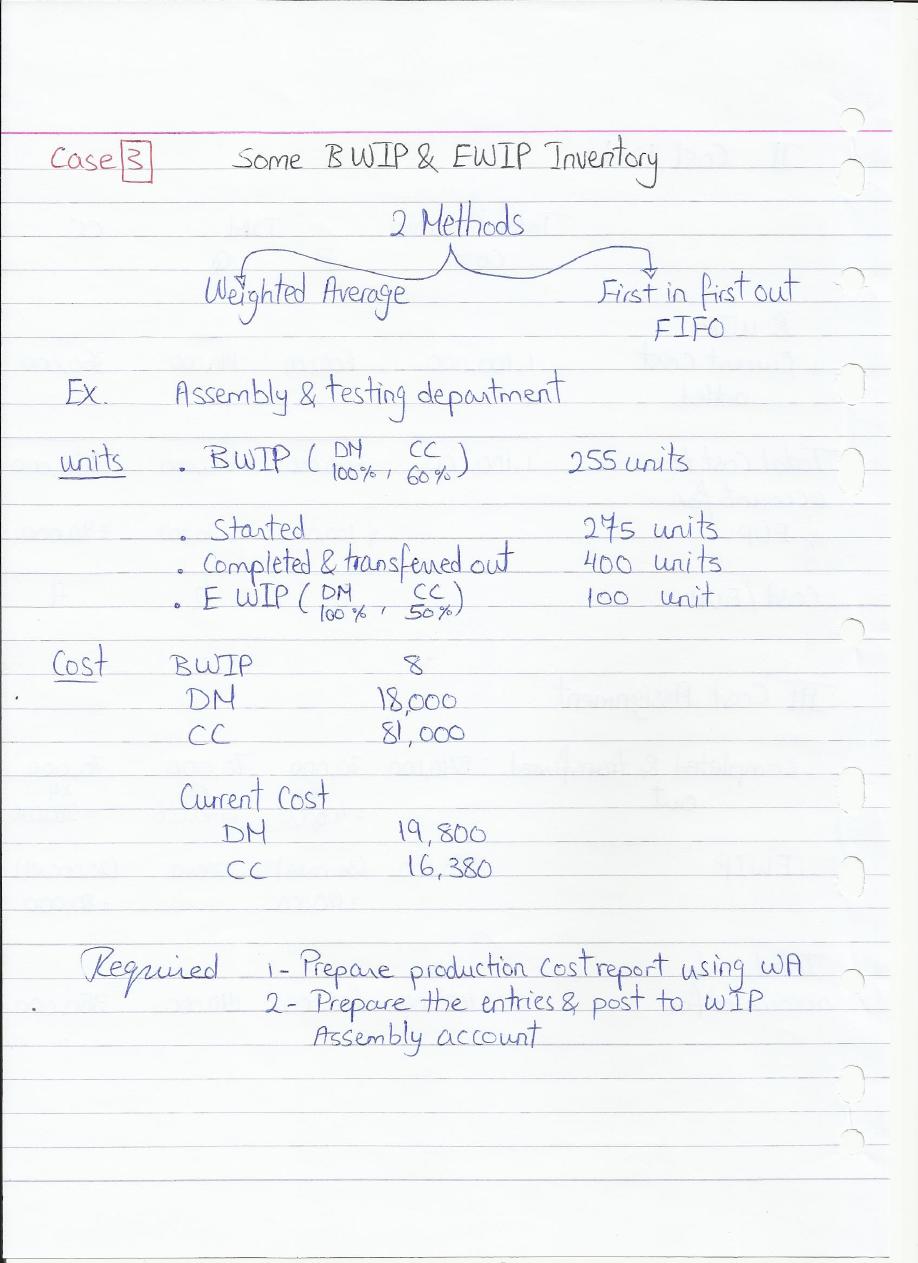 Case 3 Some BWIP & EWIP Inventory
2 Methods
Weighted Average First in first out
FIFO
Ex. Assembly & testing department
units . BWIP ( DM 100%, CC 60% ) 255 units
. Started 275 units
. Completed & transferred out 400 units
. E WIP ( DM 100%, CC 50% ) 100 unit
Cost BWIP 8
DM 18,000
CC 81,000
Current Cost
DM 19,800
CC 16,380
Required 1- Prepare production cost report using WA
2- Prepare the entries & post to WIP
Assembly account